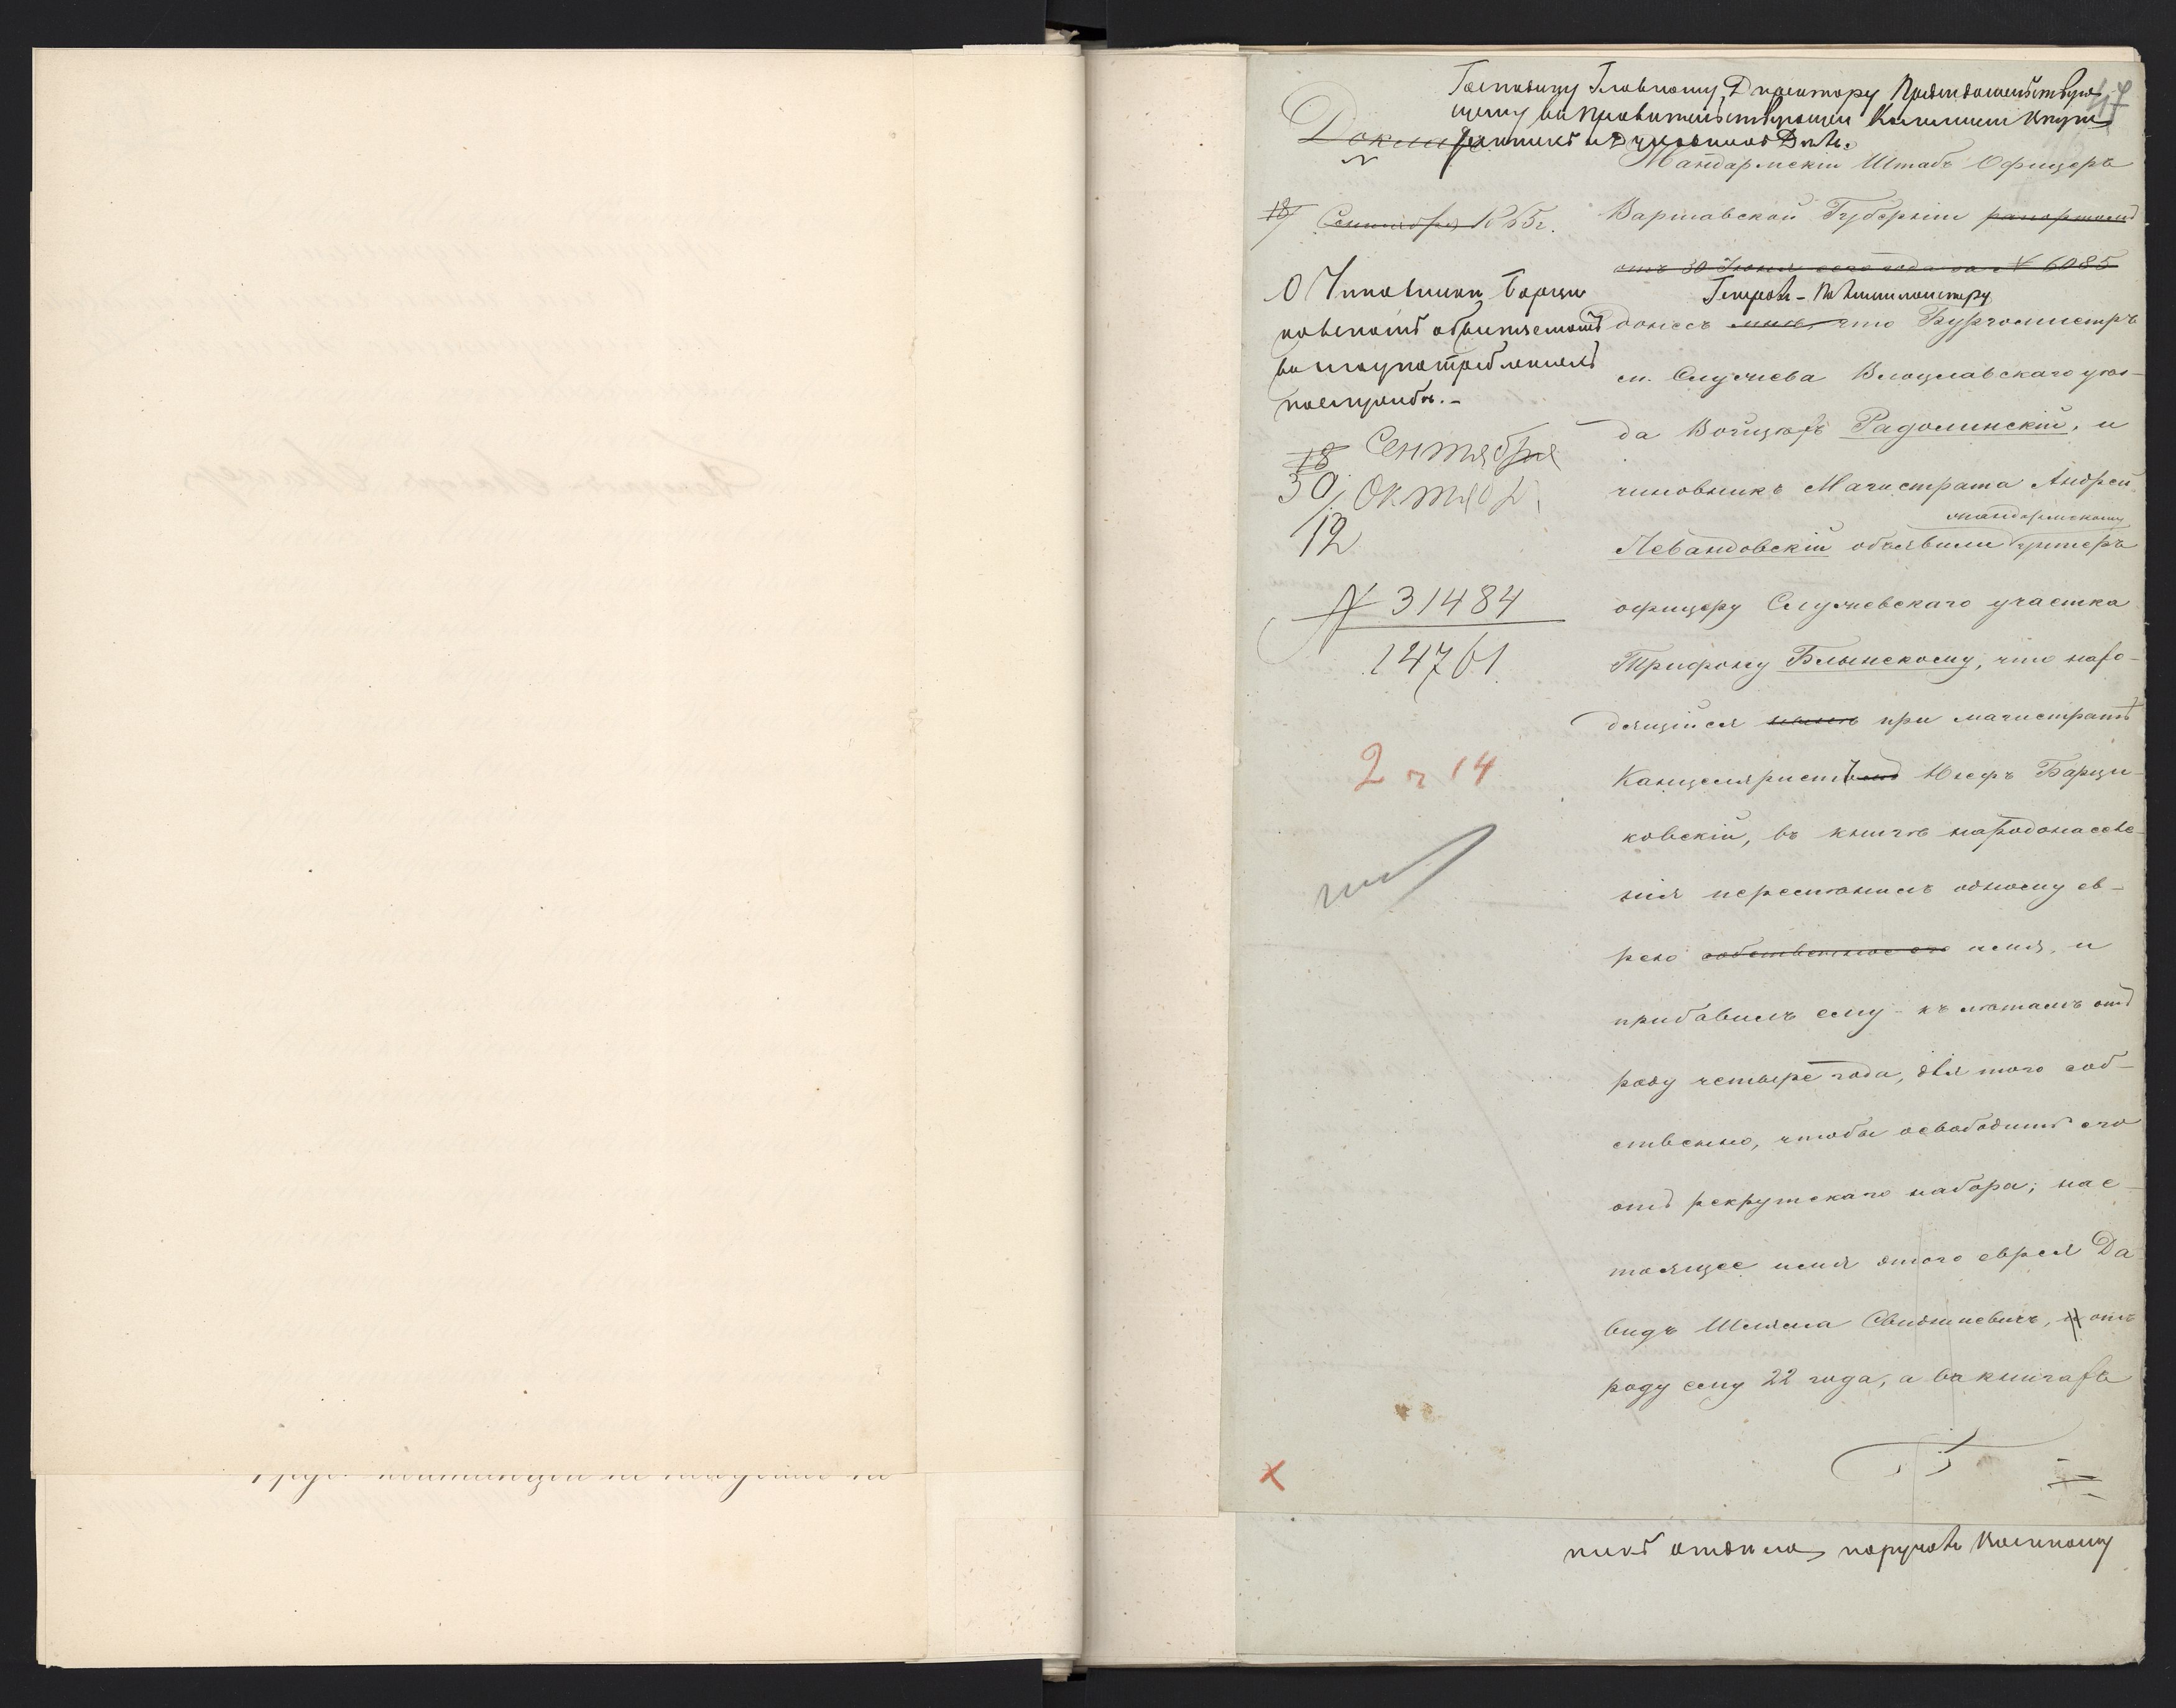 47
Господину Главному Директору Председательствую
щему въ Правительствующей Коммисіи Внутрен
нихъ и Духовныхъ Дѣлъ.
Докладъ
Жандармскій Штабъ Офицеръ
18/ Сентября 1865г.
Варшавской Губерніи рапортомъ
отъ 30 Іюня сего года за № 6085
Генералъ-Полицiймейстеру
донесъ мнѣ, что Бургомистръ
м. Служева Влоцлавскаго уѣз-
да Войцѣхъ Радолинскій, и
чиновникъ Магистрата Андрей
жандармскому
Левандовскій объявили унтеръ
офицеру Служевскаго участка
Трифону Блынскому, что нахо-
дящійся при магистратѣ
Канцеляристъ Юсефъ Барци-
ковскій, въ книгѣ народонаселе-
нія перемѣнилъ одному ев-
рею собственное его имя, и
прибавилъ ему къ лѣтамъ отъ
роду четыре года, для того соб-
ственно, чтобы освободить его
отъ рекрутскаго набора; нас-
тоящее имя этого еврея Да-
видъ Шляма, и отъ
роду ему 22 года, а въ книгахъ
О Чиновникѣ Барци
ковскомъ обвиняемомъ
въ злоупотребленіяхъ
по службѣ.-
18 Сентября
30/ Октяб.
12
№ 31484
14761
2 г 14
отдѣла поручалъ Военному